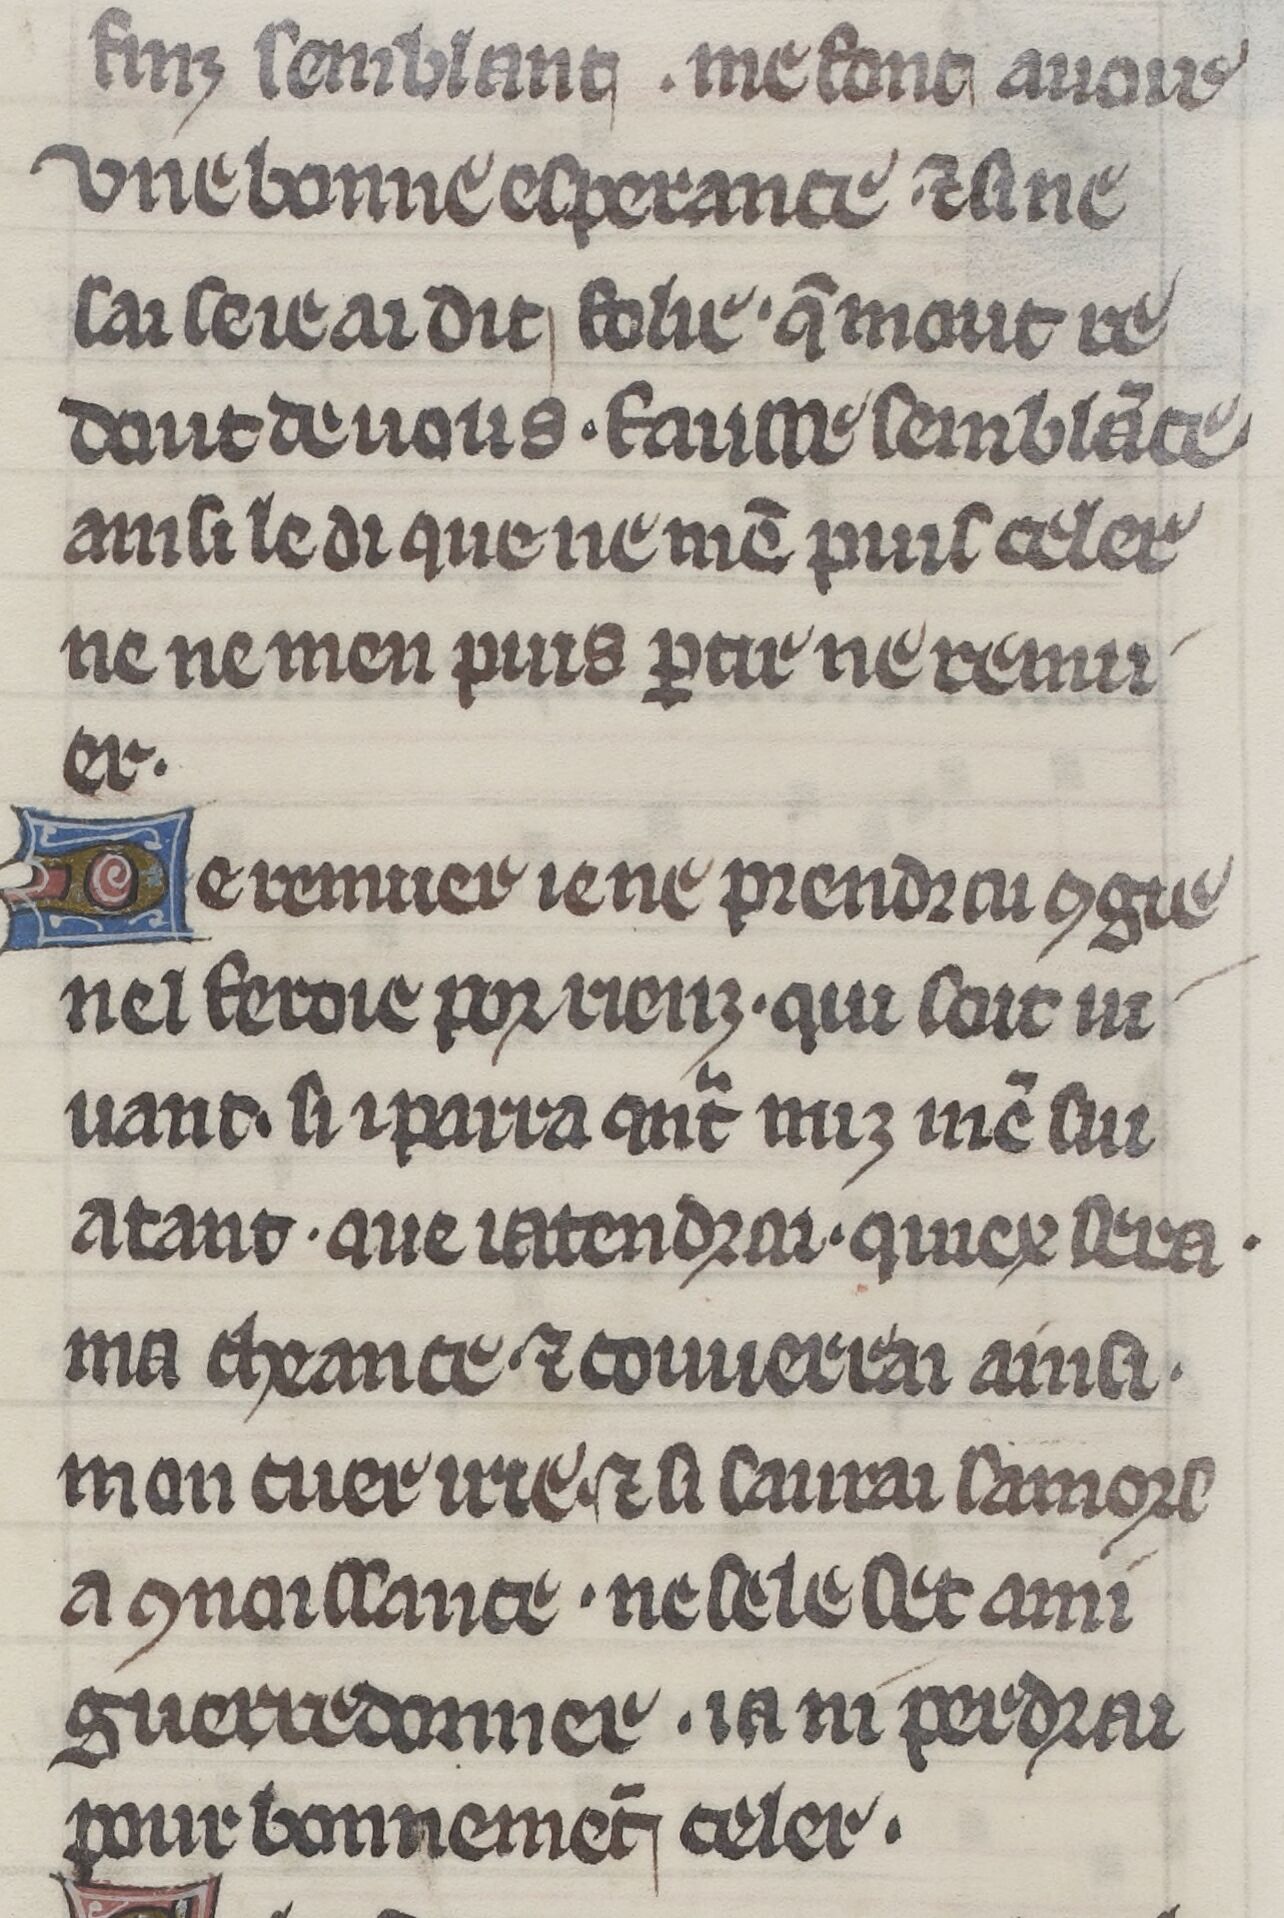 finz semblant . me font auoir
vne bonne esperance . ⁊ si ne
sai se ie ai dit folie . q̄ mout re
dout de uous . fausse semblāce
ainsi le di que ne mē puis celer
ne ne men puis ꝑtir ne remu
er .
De remuer ie ne prendrai ꝯgie
nel feroie por rienz . qui soit ui
uant . si i parra qnt̄ miz mē sui
atant . que iatendrai . quiex sera .
ma cheance . ⁊ couuerrai ainsi .
mon cuer irie . ⁊ si saurai samors
a ꝯnoissance . ne sele set ami
guerredonner . ia ni perdrai
pour bonnemēt celer .